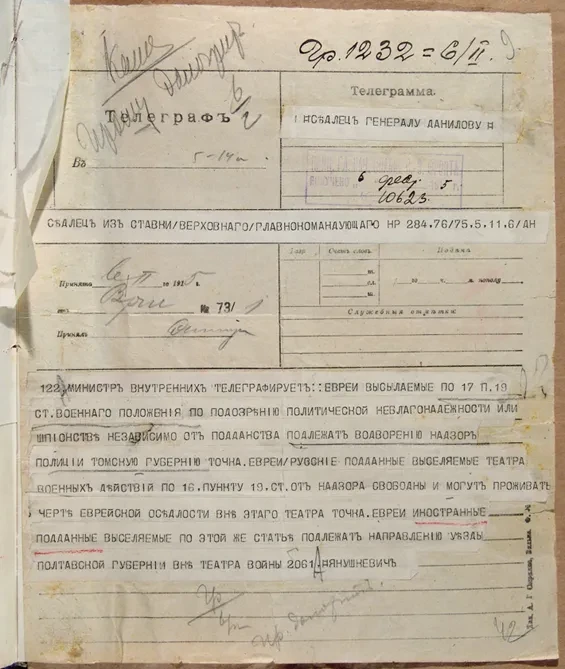 Гр. 1232 = 6/II
Телеграфъ
Телеграмма.
СѢДЛЕЦЪ ГЕНЕРАЛУ ДАНИЛОВУ
Въ 5-14
6 5
10623
СѢДЛЕЦЪ ИЗЪ СТАВНИ/ВЕРХОВНАГО/ГЛАВНОКОМАНДУЮЩАГО НР 284.76/75.5.11.6/АН
Принята 6 II го 1915 г.
№ 73/1
Принялъ
Счетъ словъ
Подача
Служебныя отмѣтки:
122 МИНИСТРЪ ВНУТРЕННИХЪ ТЕЛЕГРАФИРУЕТЪ:: ЕВРЕИ ВЫСЫЛАЕМЫЕ ПО 17 П.19
СТ.ВОЕННАГО ПОЛОЖЕНІЯ ПО ПОДОЗРѢНІЮ ПОЛИТИЧЕСКОЙ НЕБЛАГОНАДЕЖНОСТИ ИЛИ
ШПІОНСТВѢ НЕЗАВИСИМО ОТЪ ПОДДАНСТВА ПОДЛЕЖАТЪ ВОДВОРЕНІЮ НАДЗОРЪ
ПОЛИЦІИ ТОМСКУЮ ГУБЕРНІЮ ТОЧКА. ЕВРЕИ/РУССКІЕ ПОДДАННЫЕ ВЫСЕЛЯЕМЫЕ ТЕАТРА
ВОЕННЫХЪ ДѢЙСТВІЙ ПО 16.ПУННТУ 19.СТ.ОТЪ НАДЗОРА СВОБОДНЫ И МОГУТЪ ПРОЖИВАТЬ
ЧЕРТѢ ЕВРЕЙСКОЙ ОСѢДЛОСТИ ВНѢ ЭТАГО ТЕАТРА ТОЧКА. ЕВРЕИ ИНОСТРАННЫЕ
ПОДДАННЫЕ ВЫСЕЛЯЕМЫЕ ПО ЭТОЙ ЖЕ СТАТЬѢ ПОДЛЕЖАТЪ НАПРАВЛЕНІЮ УѢЗДЫ
ПОЛТАВСКОЙ ГУБЕРНІИ ВНѢ ТЕАТРА ВОЙНЫ 2061 ЯНУШКЕВИЧЪ
42